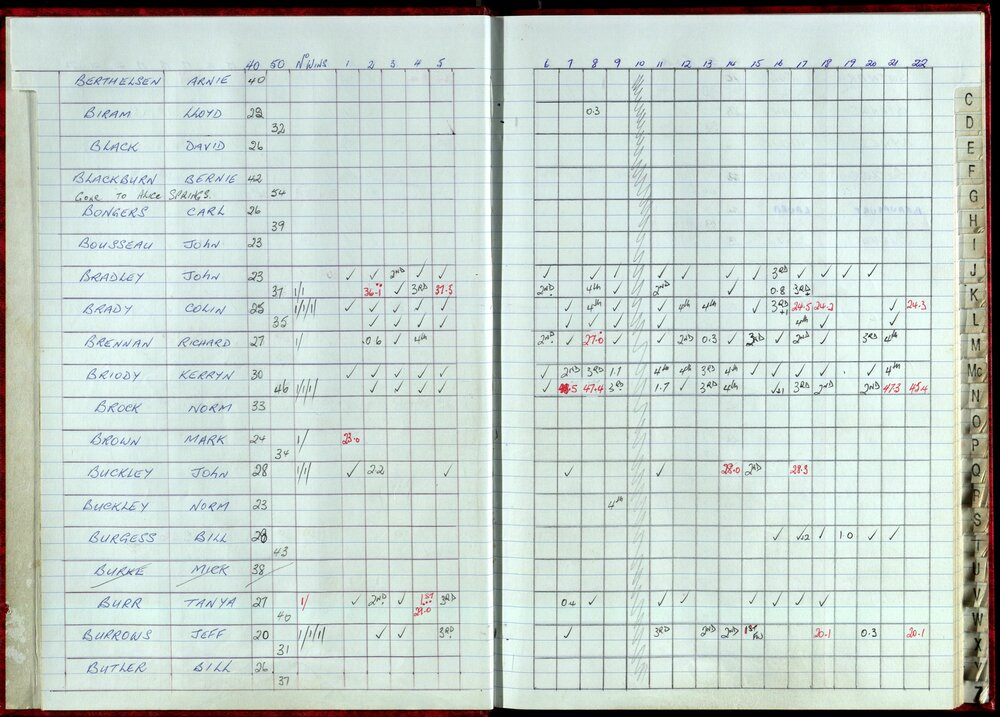 40 50 No WINS 1 2 3 4 5 6 7 8 9 10 11 12 13 14 15 16 17 18 19 20 21 22
BERTHELSEN ARNIE 40
BIRAM LLOYD 0.3
32
BLACK DAVID 26
BLACKBURN BERNIE 42
GONE TO ALICE SPRINGS. 54
BONGERS CARL 26
39
BOUSSEAU JOHN 23
BRADLEY JOHN 23 ✓ ✓ 2ND ✓ ✓ ✓ ✓ ✓ ✓ ✓ ✓ ✓ 3RD ✓ ✓ ✓ ✓
37 1/1 36.1 ✓ 3RD 37.5 2ND 4th ✓ 2ND ✓ 0.8 3RD
BRADY COLIN 25 1/1/1 ✓ ✓ ✓ ✓ ✓ ✓ 4th ✓ ✓ 4th 4th ✓ 3RD 24.5 24.2 ✓ 24.3
35 ✓ ✓ ✓ ✓ ✓ ✓ ✓ ✓ 4th ✓ ✓
BRENNAN RICHARD 27 1/ 0.6 ✓ 4th 2ND ✓ 27.0 ✓ ✓ 2ND 0.3 ✓ 3RD ✓ 2ND ✓ 3RD 4th
BRIODY KERRYN 30 ✓ ✓ ✓ ✓ ✓ ✓ 2ND 3RD 1.1 4th 4th 3RD 4th ✓ ✓ ✓ ✓ ✓ 4th
46 1/1/1 ✓ ✓ ✓ ✓ ✓ 47.4 3RD 1.7 ✓ 3RD 4th 3RD 2ND 2ND 47.3 45.4
BROCK NORM 33
BROWN MARK 24 1/ 23.0
34
BUCKLEY JOHN 28 1/1/1 ✓ 2.2 ✓ ✓ ✓ 28.0 2ND 28.3
BUCKLEY NORM 23 4th
BURGESS BILL ✓ ✓ 1.0 ✓ ✓
43
BURKE MICK 38
BURR TANYA 27 1/ ✓ 2ND ✓ 1ST 3RD 0.4 ✓ ✓ ✓ ✓ ✓ ✓ ✓
40 29.0
BURROWS JEFF 20 1/1/1/1 ✓ ✓ 3RD ✓ 3RD 2ND 2ND 1ST 20.1 0.3 20.1
31
BUTLER BILL 26
37
C
D
E
F
G
H
I
J
K
L
M
Mc
N
O
P
Q
R
S
T
U
V
W
X
Y
Z